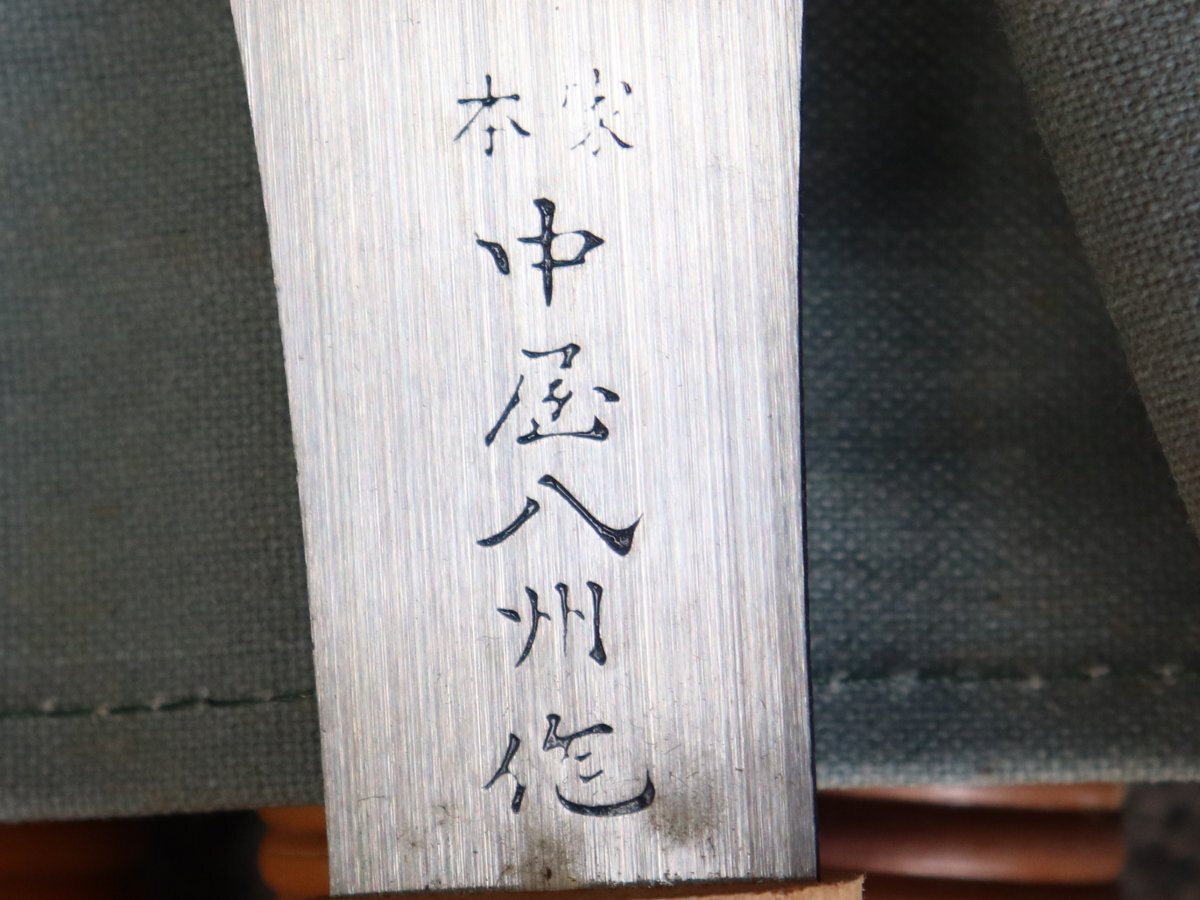 本家
中屋八州作